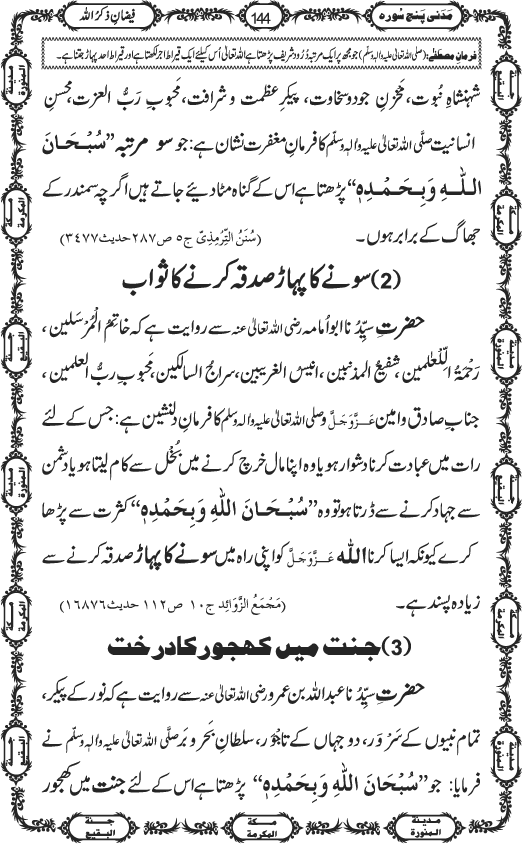 مَدَنی پنج سورہ
144
فیضانِ ذکرُ اللہ
فرمانِ مصطفٰے: (صلی اللہ تعالیٰ علیہ والہٖ وسلم) جو مجھ پر ایک مرتبہ دُرود شریف پڑھتا ہے اللہ تعالیٰ اُس کیلئے ایک قیراط اجر لکھتا ہے اور قیراط احد پہاڑ جتنا ہے۔
شہنشاہِ نُبوت، مَخْزنِ جود وسخاوت، پیکرِ عظمت و شرافت، مَحبوبِ رَبُّ العزت، محسنِ
انسانیت صلَّی اللہ تعالیٰ علیہ والہٖ وسلّم کا فرمانِ مغفرت نشان ہے: جو سو مرتبہ ”سُبْحَانَ
اللہِ وَبِحَمْدِہٖ“ پڑھتا ہے اس کے گناہ مٹا دیئے جاتے ہیں اگر چہ سمندر کے
جھاگ کے برابر ہوں۔ (سُنَنُ التِّرمِذِیّ ج۵ ص۲۸۷ حدیث۳۴۷۷)
(2) سونے کا پہاڑ صدقہ کرنے کا ثواب
حضرتِ سیِّدُ نا ابو اُمامہ رضی اللہ تعالیٰ عنہ سے روایت ہے کہ خاتِمُ الْمُرْسَلین،
رَحْمَۃٌ لِّلْعٰلمین، شفیعُ المذنبین، انیسُ الغریبین، سراجُ السالکین، مَحبوبِ ربُّ العلمین،
جنابِ صادق و امین عَزَّوَجَلَّ وصلی اللہ تعالیٰ علیہ والہٖ وسلم کا فرمانِ دلنشین ہے: جس کے لئے
رات میں عبادت کرنا دشوار ہو یا وہ اپنا مال خرچ کرنے میں بُخْل سے کام لیتا ہو یا دشمن
سے جہاد کرنے سے ڈرتا ہو تو وہ ”سُبْحَانَ اللہِ وَبِحَمْدِہٖ“ کثرت سے پڑھا
کرے کیونکہ ایسا کرنا اللہ عَزَّوَجَلَّ کو اپنی راہ میں سونے کا پہاڑ صدقہ کرنے سے
زیادہ پسند ہے۔ (مَجْمَعُ الزَّوَائِد ج۱۰ ص۱۱۲ حدیث۱۶۸۷۶)
(3) جنت میں کھجور کا درخت
حضرتِ سیِّدُ نا عبد اللہ بن عمرو رضی اللہ تعالیٰ عنہ سے روایت ہے کہ نور کے پیکر،
تمام نبیوں کے سَرْوَر، دو جہاں کے تاجْوَر، سلطانِ بَحْر و بَر صلَّی اللہ تعالیٰ علیہ والہٖ وسلّم نے
فرمایا: جو ”سُبْحَانَ اللہِ وَبِحَمْدِہٖ“ پڑھتا ہے اس کے لئے جنت میں کھجور
مدینۃ المنورۃ
مکۃ المکرمۃ
جنۃ البقیع